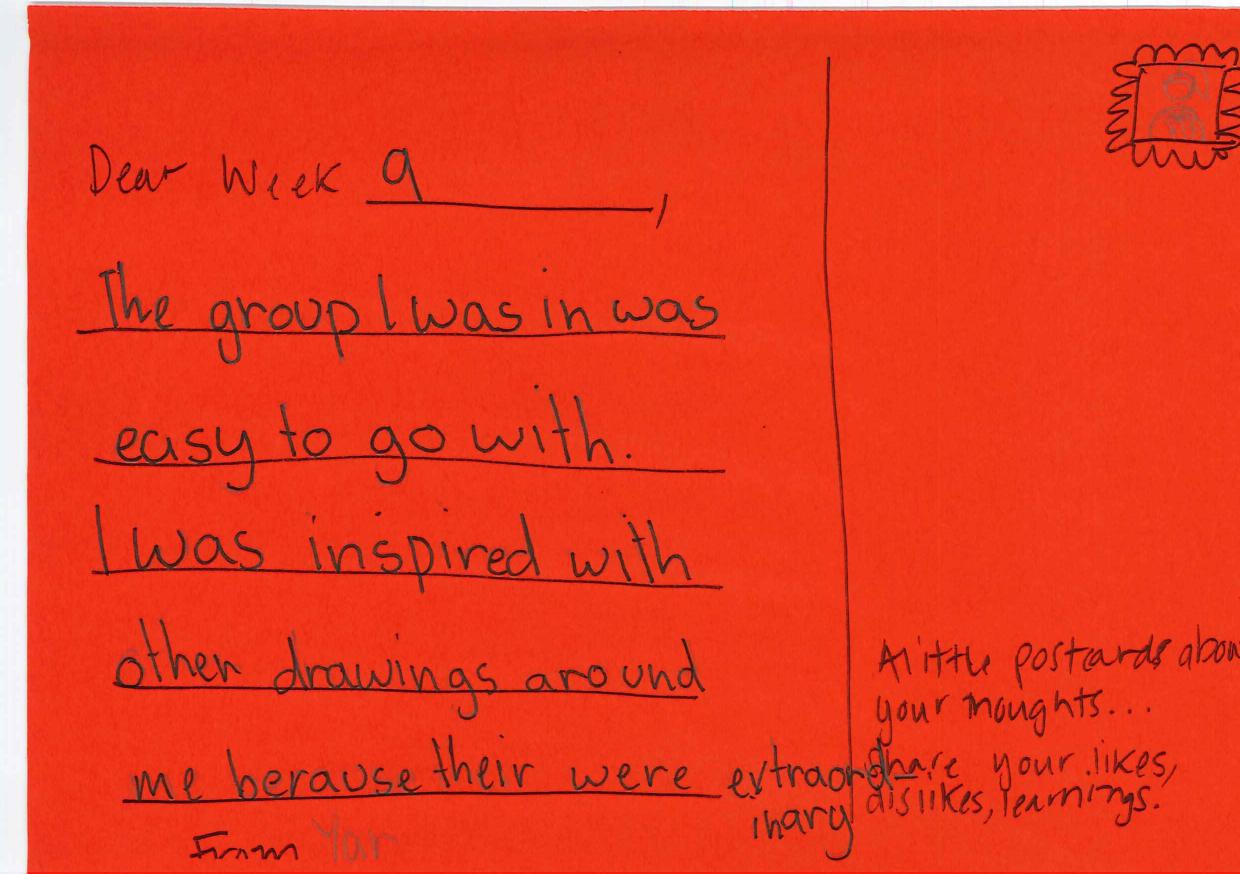 Dear Week 9,
The group I was in was
easy to go with.
I was inspired with
other drawings around
me berause their were extraord-
inary
From Yar
A little postcards abou
your thoughts...
Share your likes,
dislikes, learnings.